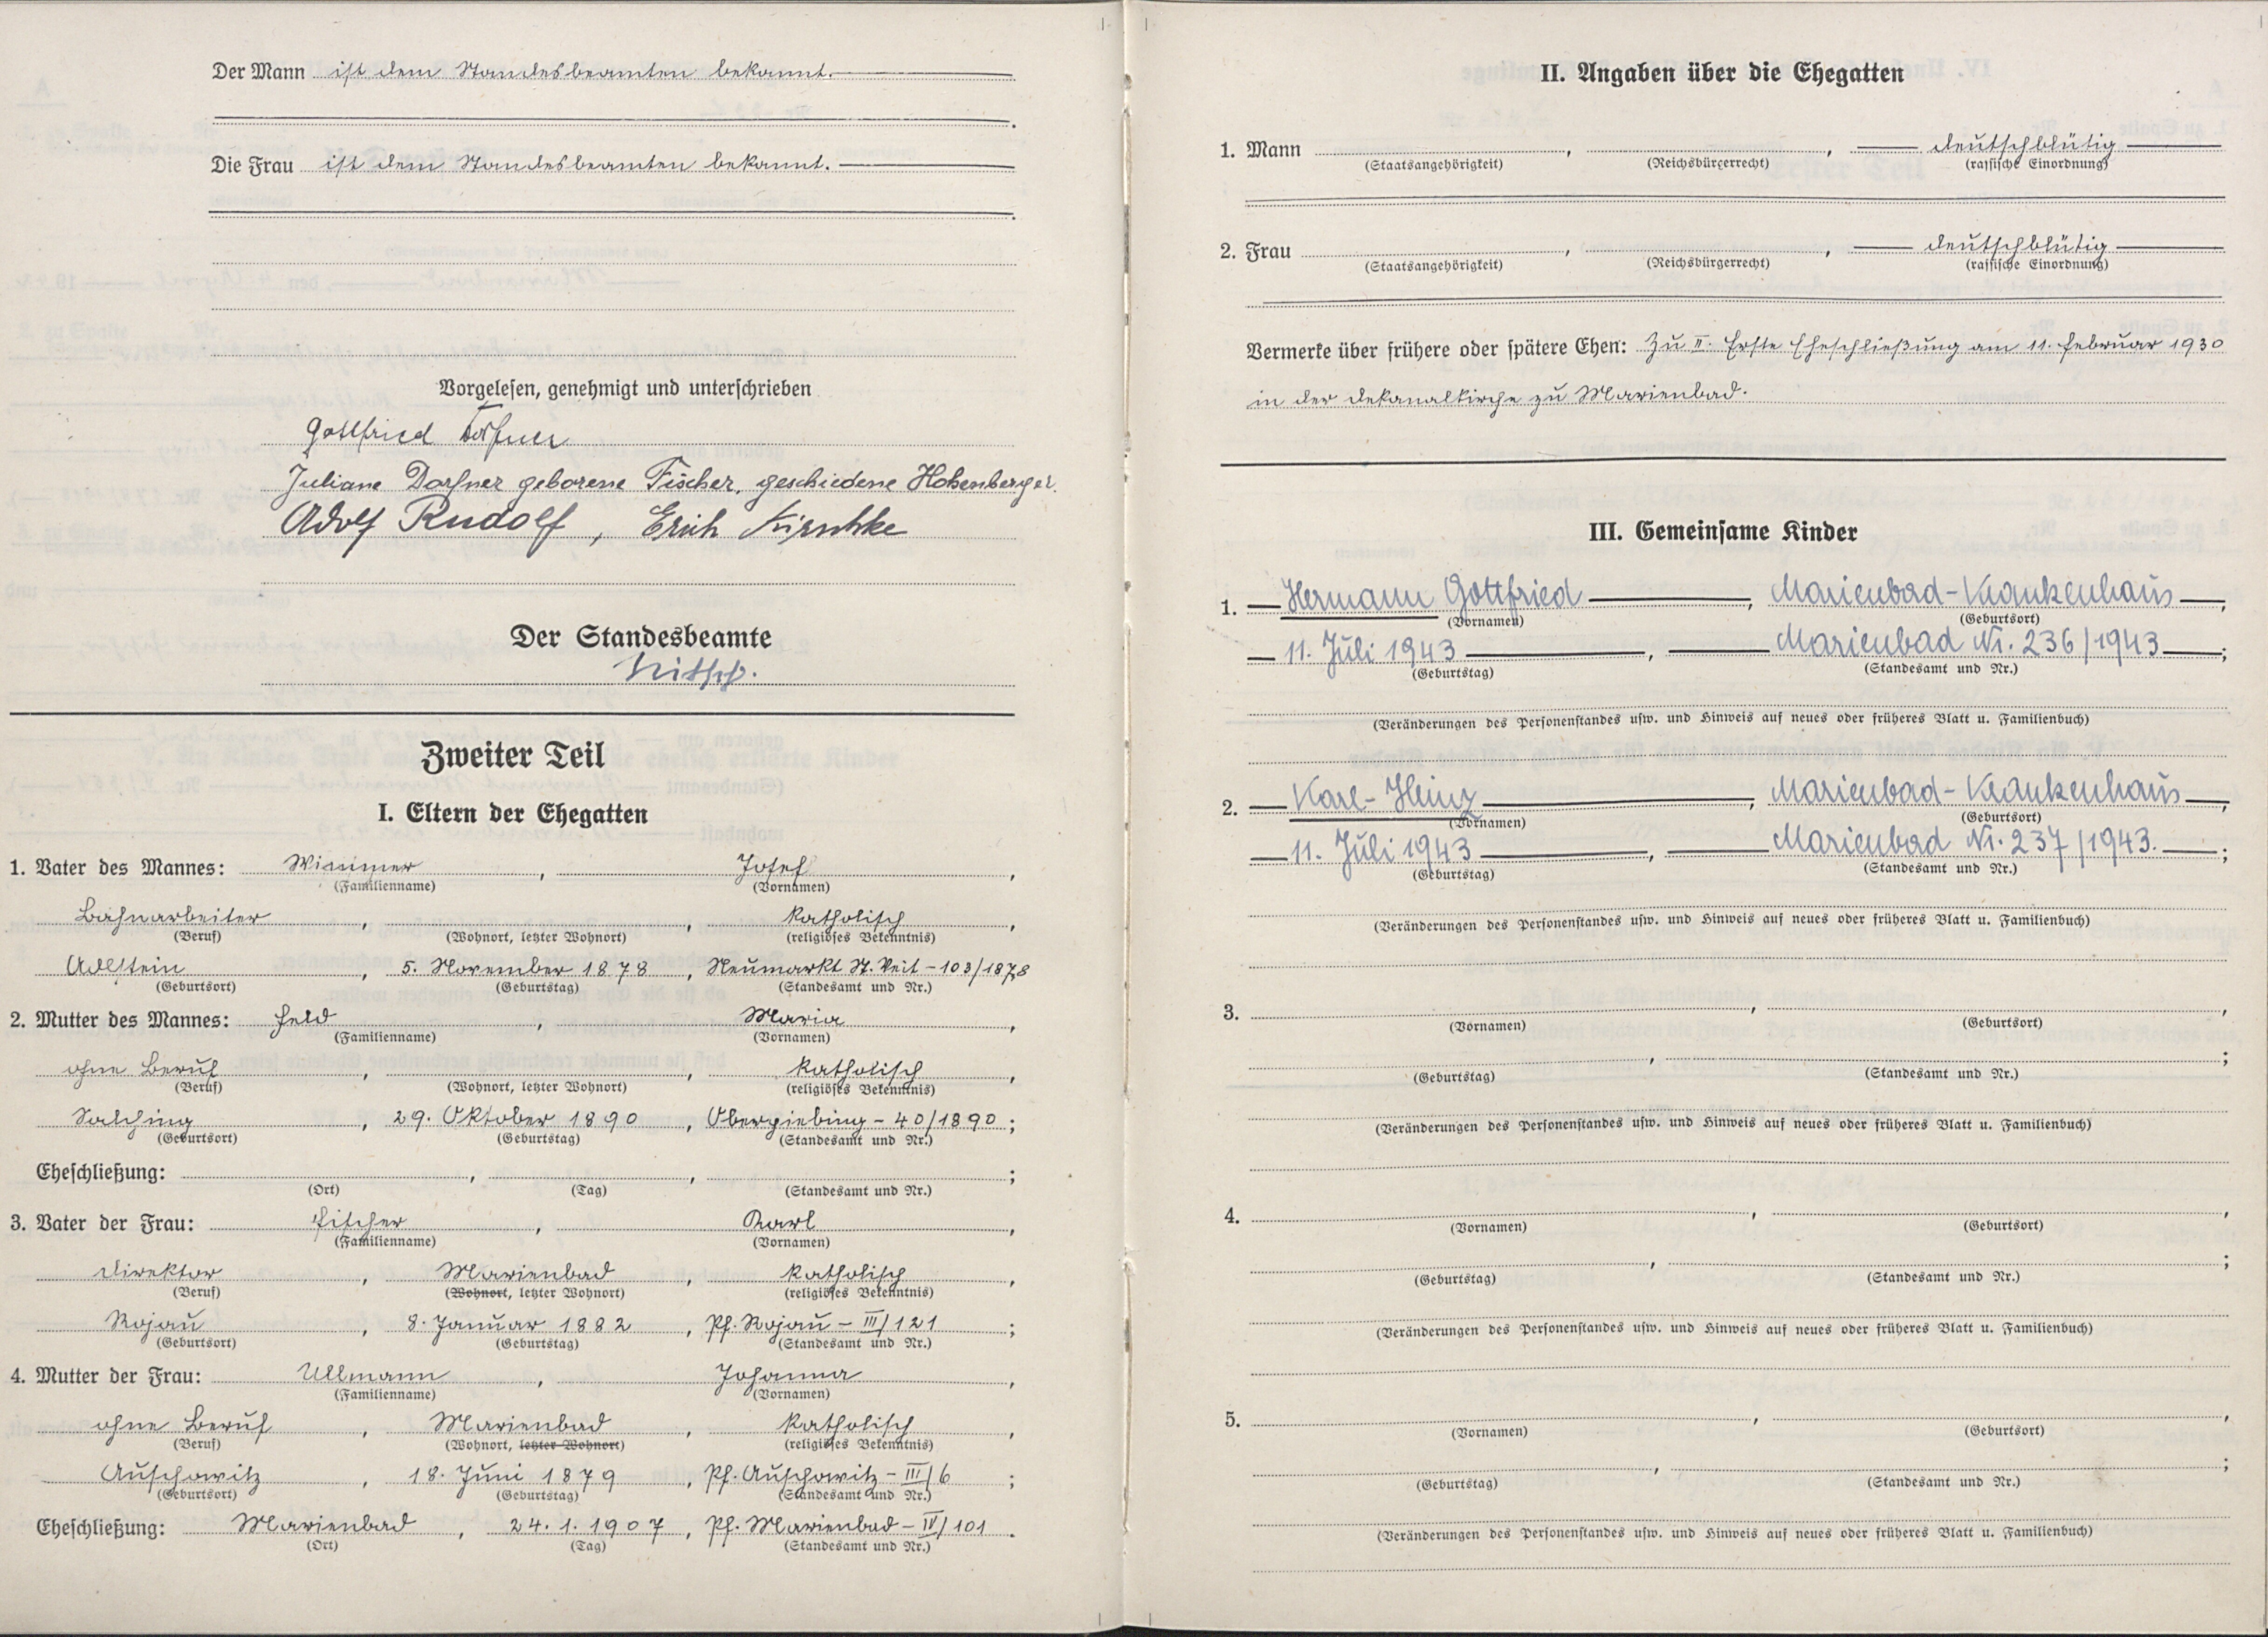 Der Mann ist dem Standesbeamten bekannt.
Die Frau ist dem Standesbeamten bekannt.
Vorgelesen, genehmigt und unterschrieben
Gottfried Dorfner
Juliane Dorfner geborene Fischer, geschiedene Hohenberger.
Adolf Rudolf, Erich
Der Standesbeamte
Zweiter Teil
I. Eltern der Ehegatten
1. Vater des Mannes: Wimmer, Josef,
(Familienname) (Vornamen)
Bahnarbeiter, , katholisch,
(Beruf) (Wohnort, letzter Wohnort) (religiöses Bekenntnis)
Adlstein, 5. November 1878, Neumarkt St. Veit - 103/1878
(Geburtsort) (Geburtstag) (Standesamt und Nr.)
2. Mutter des Mannes: Held, Maria,
(Familienname) (Vornamen)
ohne Beruf, , katholisch,
(Beruf) (Wohnort, letzter Wohnort) (religiöses Bekenntnis)
Salching, 29. Oktober 1890, Obergiebing - 40/1890;
(Geburtsort) (Geburtstag) (Standesamt und Nr.)
Eheschließung: , , ;
(Ort) (Tag) (Standesamt und Nr.)
3. Vater der Frau: Fischer, Karl,
(Familienname) (Vornamen)
Direktor, Marienbad, katholisch,
(Beruf) (Wohnort, letzter Wohnort) (religiöses Bekenntnis)
Rojau, 8. Januar 1882, Pf. Rojau - III/121;
(Geburtsort) (Geburtstag) (Standesamt und Nr.)
4. Mutter der Frau: Ullmann, Johanna,
(Familienname) (Vornamen)
ohne Beruf, Marienbad, katholisch,
(Beruf) (Wohnort, letzter Wohnort) (religiöses Bekenntnis)
Auschowitz, 18. Juni 1879, Pf. Auschowitz - III/6;
(Geburtsort) (Geburtstag) (Standesamt und Nr.)
Eheschließung: Marienbad, 24.1.1907, Pf. Marienbad - IV/101.
(Ort) (Tag) (Standesamt und Nr.)
II. Angaben über die Ehegatten
1. Mann , , deutschblütig
(Staatsangehörigkeit) (Reichsbürgerrecht) (rassische Einordnung)
2. Frau , , deutschblütig
(Staatsangehörigkeit) (Reichsbürgerrecht) (rassische Einordnung)
Vermerke über frühere oder spätere Ehen: Zu II. Erste Eheschließung am 11. Februar 1930
in der Dekanalkirche zu Marienbad.
III. Gemeinsame Kinder
1. Hermann Gottfried, Marienbad-Krankenhaus,
(Vornamen) (Geburtsort)
11. Juli 1943, Marienbad Nr. 236/1943;
(Geburtstag) (Standesamt und Nr.)
(Veränderungen des Personenstandes usw. und Hinweis auf neues oder früheres Blatt u. Familienbuch)
2. Karl-Heinz, Marienbad-Krankenhaus,
(Vornamen) (Geburtsort)
11. Juli 1943, Marienbad Nr. 237/1943.;
(Geburtstag) (Standesamt und Nr.)
(Veränderungen des Personenstandes usw. und Hinweis auf neues oder früheres Blatt u. Familienbuch)
3. , ,
(Vornamen) (Geburtsort)
, ;
(Geburtstag) (Standesamt und Nr.)
(Veränderungen des Personenstandes usw. und Hinweis auf neues oder früheres Blatt u. Familienbuch)
4. , ,
(Vornamen) (Geburtsort)
, ;
(Geburtstag) (Standesamt und Nr.)
(Veränderungen des Personenstandes usw. und Hinweis auf neues oder früheres Blatt u. Familienbuch)
5. , ,
(Vornamen) (Geburtsort)
, ;
(Geburtstag) (Standesamt und Nr.)
(Veränderungen des Personenstandes usw. und Hinweis auf neues oder früheres Blatt u. Familienbuch)